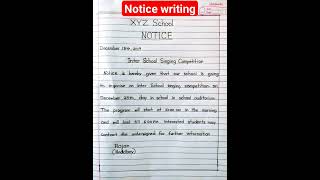 Notice writing
XYZ School
NOTICE
December 18th, 2019
Inter School Singing Competition
Notice is hereby given that our school is going
to organise an Inter School singing competition on
December 25th, day in school in school auditorium.
The program will start at 10:00 am in the morning
and will last till 6:00 PM. Interested students may
contact the undersigned for further information
Rajan
(Headboy)